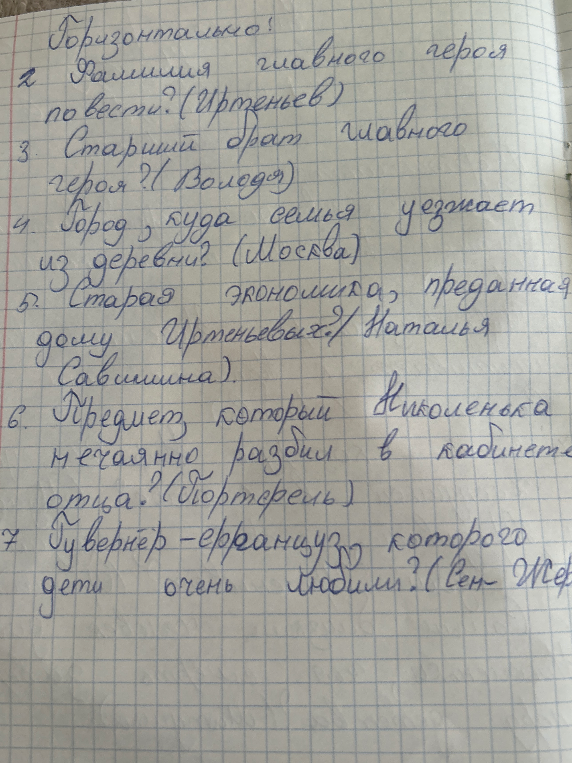 Горизонтально!
2 Фамилия главного героя
повести? (Иртеньев)
3. Старший брат главного
героя? (Володя)
4. Город, куда семья уезжает
из деревни? (Москва)
5. Старая экономика, преданная
дому Иртеньевых? (Наталья
Савишина).
6. Предмет, который Николенька
нечаянно разбил в кабинете
отца? (Портфель)
7 Гувернёр-француз, которого
дети очень любили? (Сен-Жер